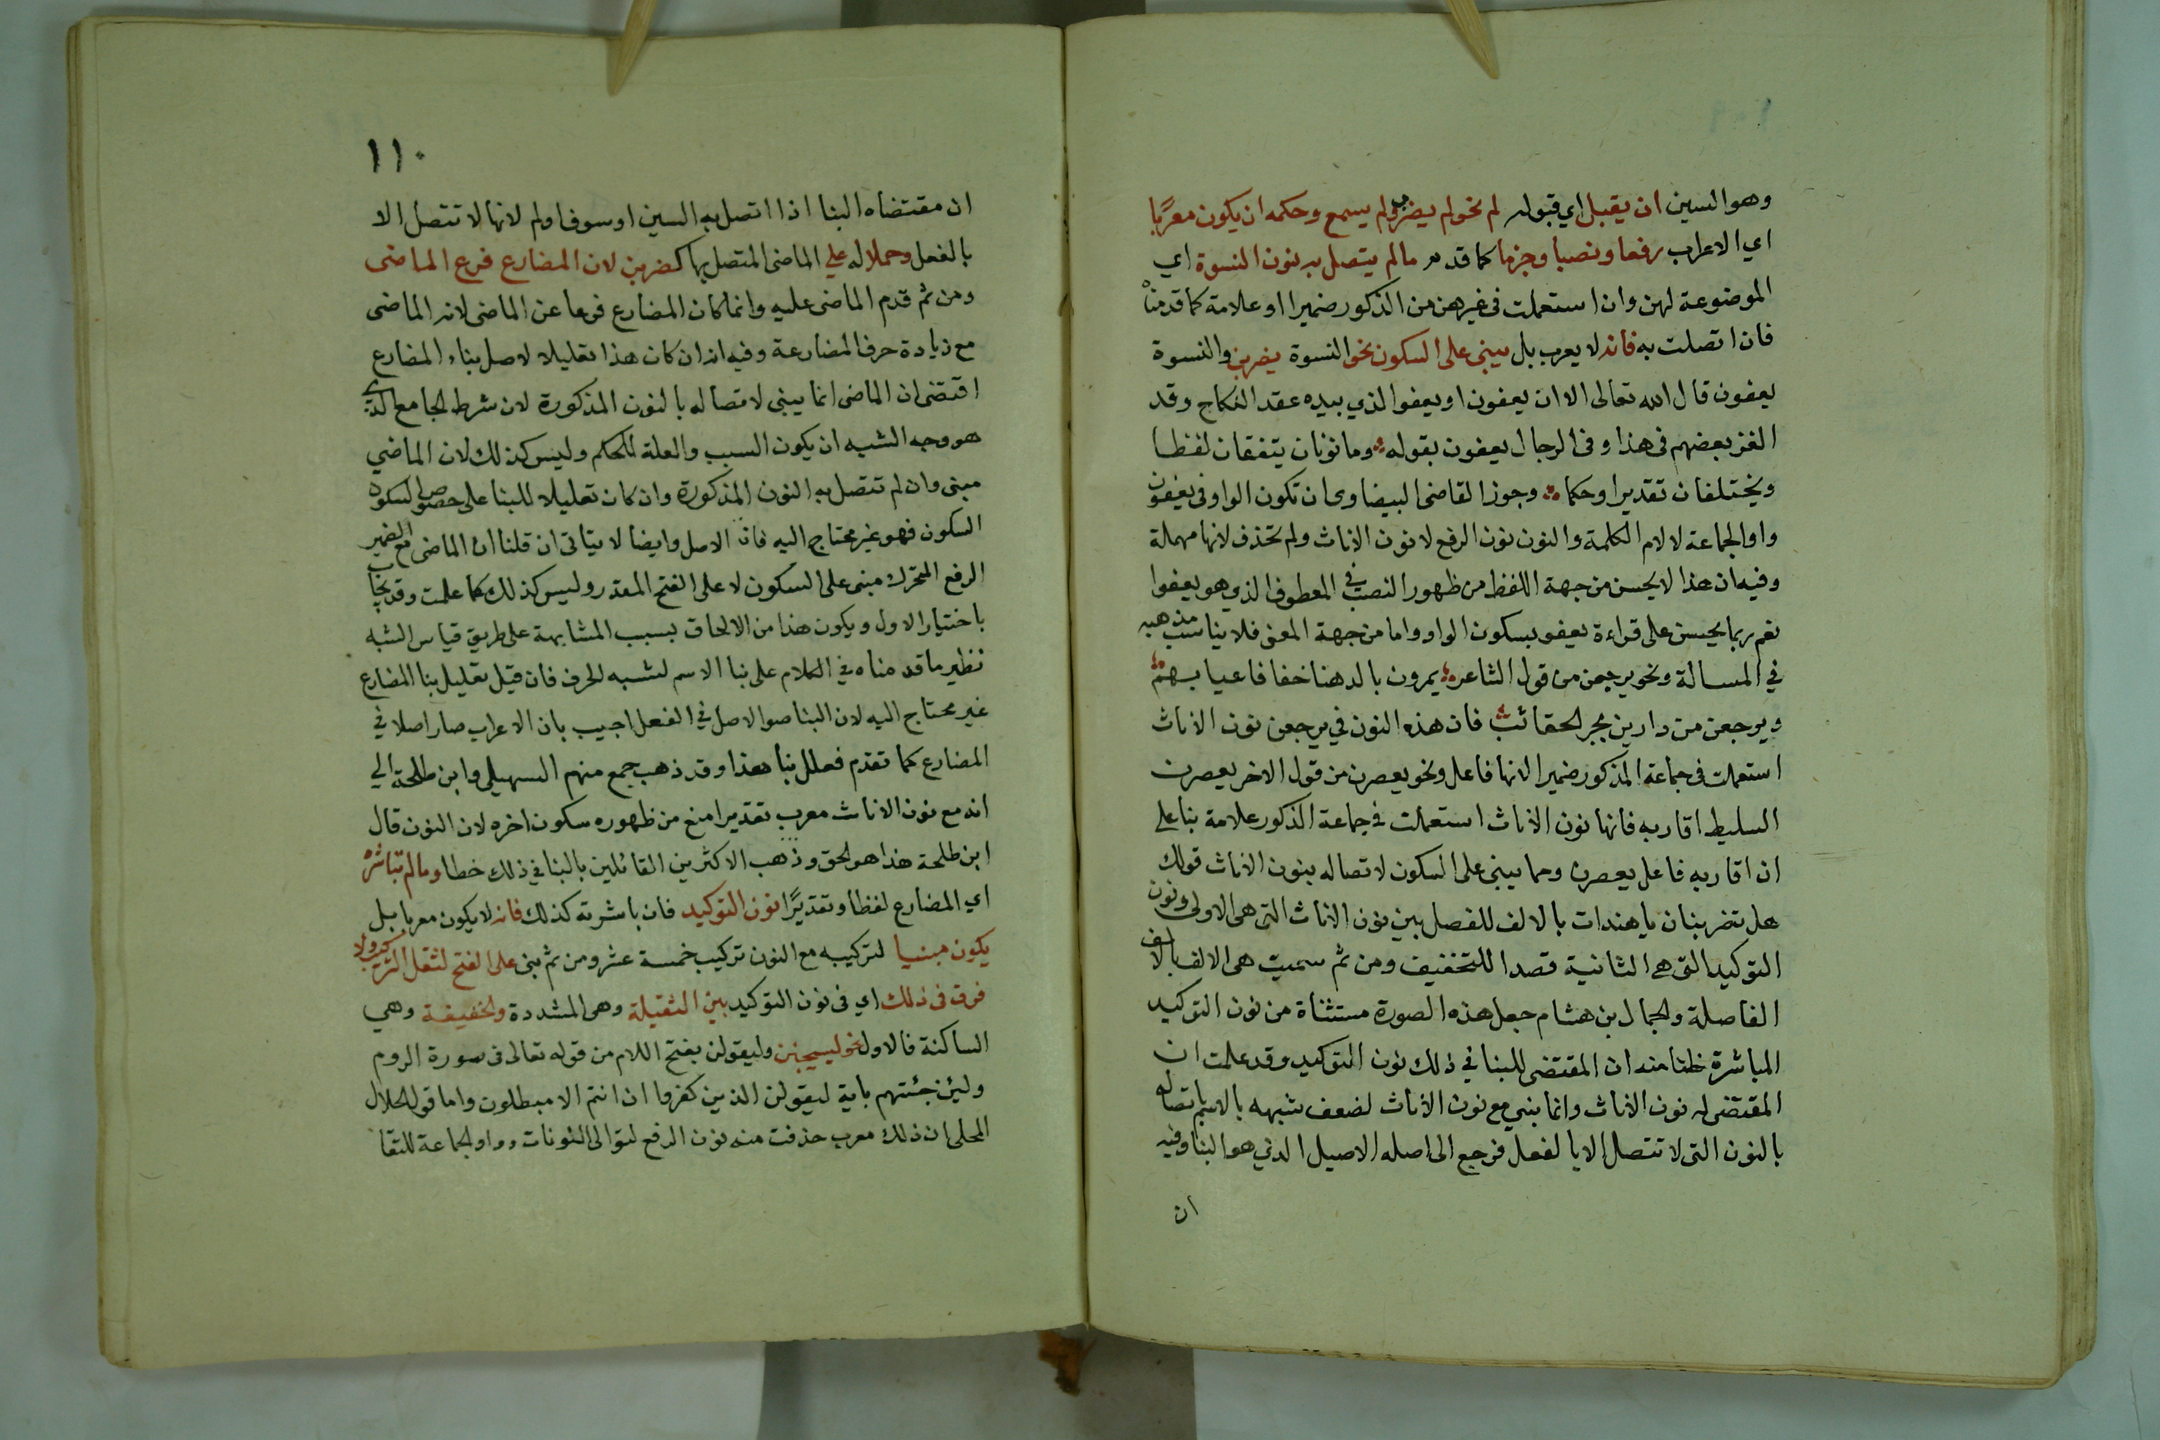 وهو السين ان يقبل اي قبوله لم نحو لم يضرب ولم يسمع وحكمه ان يكون معربًا
اي الاعراب رفعا ونصبا وجزما كما قدم مالم يتصل به نون النسوة اي
الموضوعة لهن وان استعملت في غيرهن من الذكور ضميرا او علامة كما قدمناه
فان اتصلت به فانه لا يعرب بل يبنى على السكون نحو النسوة يضربن والنسوة
يعفون قال الله تعالى الا ان يعفون او يعفوا الذي بيده عقد النكاح وقد
الغز بعضهم في هذا وفي الرجال يعفون بقوله وما نونان يتفقان لفظا
ويختلفان تقديرا وحكما وجوز القاضى البيضاوى ان تكون الواو في يعفون
واو الجماعة لا لام الكلمة والنون نون الرفع لا نون الاناث ولم تحذف لانها مهملة
وفيه ان هذا لا يحسن من جهة اللفظ من ظهور النصب في المعطوف الذي هو يعفوا
نعم ربما يحسن على قراءة يعفو بسكون الواو واما من جهة المعنى فلا يناسب مذهبه
في المسالة ونحو يرجعن من قول الشاعر يمرون بالدهنا خفافا عيابهم
ويرجعن من دارين بجر الحقائب فان هذه النون في يرجعن نون الاناث
استعملت في جماعة المذكور ضميرا لانها فاعل ونحو يعصرن من قول الاخر يعصرن
السليط اقاربه فانها نون الاناث استعملت في جماعة الذكور علامة بنا على
ان اقاربه فاعل يعصرن ومما يبنى على السكون لاتصاله بنون الاناث قولك
هل تضربنان يا هندات بالالف للفصل بين نون الاناث التى هى الاولى ونون
التوكيد التى هي الثانية قصدا للتخفيف ومن ثم سميت هى الالف بالالف
الفاصلة والجمال بن هشام جعل هذه الصورة مستثناة من نون التوكيد
المباشرة ظنا منه ان المقتضى للبنا في ذلك نون التوكيد وقد علمت ان
المقتضى له نون الاناث وانما بني مع نون الاناث لضعف شبهه بالاسم باتصاله
بالنون التى لا تتصل الا بالفعل فرجع الى اصله الاصيل الذي هو البنا وفيه
ان
١١٠
ان مقتضاه البنا اذا اتصل به السين او سوف او لم لانها لا تتصل الا
بالفعل وحملا له علي الماضى المتصل بها كضربن لان المضارع فرع الماضى
ومن ثم قدم الماضى عليه وانما كان المضارع فرعا عن الماضى لانه الماضى
مع زيادة حرف المضارعة وفيه انه ان كان هذا تعليلا لاصل بناء المضارع
اقتضى ان الماضى انما يبنى لاتصاله بالنون المذكورة لان شرط الجامع الذي
هو وجه الشبه ان يكون السبب والعلة للحكم وليس كذلك لان الماضي
مبنى وان لم تتصل به النون المذكورة وان كان تعليلا للبنا على خصوص السكون
السكون فهو غير محتاج اليه فان الاصل وايضا لا يتاتى ان قلنا ان الماضى مع الضمير
الرفع المتحرك مبنى على السكون لا على الفتح المقدر وليس كذلك كما علمت وقد يجاب
باختيار الاول ويكون هذا من الالحاق بسبب المشابهة على طريق قياس الشبه
نظير ما قدمناه في الكلام على بنا الاسم لشبه الحرف فان قيل تعليل بنا المضارع
غير محتاج اليه لان البنا هو الاصل في الفعل اجيب بان الاعراب صار اصلا في
المضارع كما تقدم فعلل بنا هذا وقد ذهب جمع منهم السهيلي وابن طلحة الي
انه مع نون الاناث معرب تقديرا منع من ظهوره سكون اخره لان النون قال
ابن طلحة هذا هو الحق وذهب الاكثرين القائلين بالبنا في ذلك خطا وما لم تباشره
اي المضارع لفظا وتقديرًا نون التوكيد فان باشرته كذلك فانه لا يكون معربا بل
يكون مبنيا لتركيبه مع النون تركيب خمسة عشر ومن ثم بنى على الفتح لثقل التركيب ولا
فرق في ذلك اي في نون التوكيد بين الثقيلة وهي المشددة والخفيفة وهي
الساكنة فالاول نحو ليسجنن وليقولن بفتح اللام من قوله تعالى في سورة الروم
ولين جئتهم باية ليقولن الذين كفروا ان انتم الا مبطلون واما قول الجلال
المحلى ان ذلك معرب حذفت منه نون الرفع لتوالى النونات وواو الجماعة للتقا